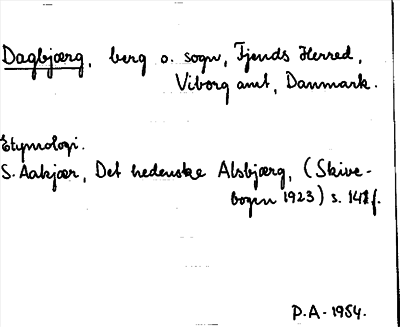 Dagbjærg, berg o. sogn, Fjends Herred,
Viborg amt, Danmark.
Etymologi.
S. Aakjær, Det hedenske Alsbjærg, (Skive-
bogen 1923) s. 141f.
P.A. 1954.